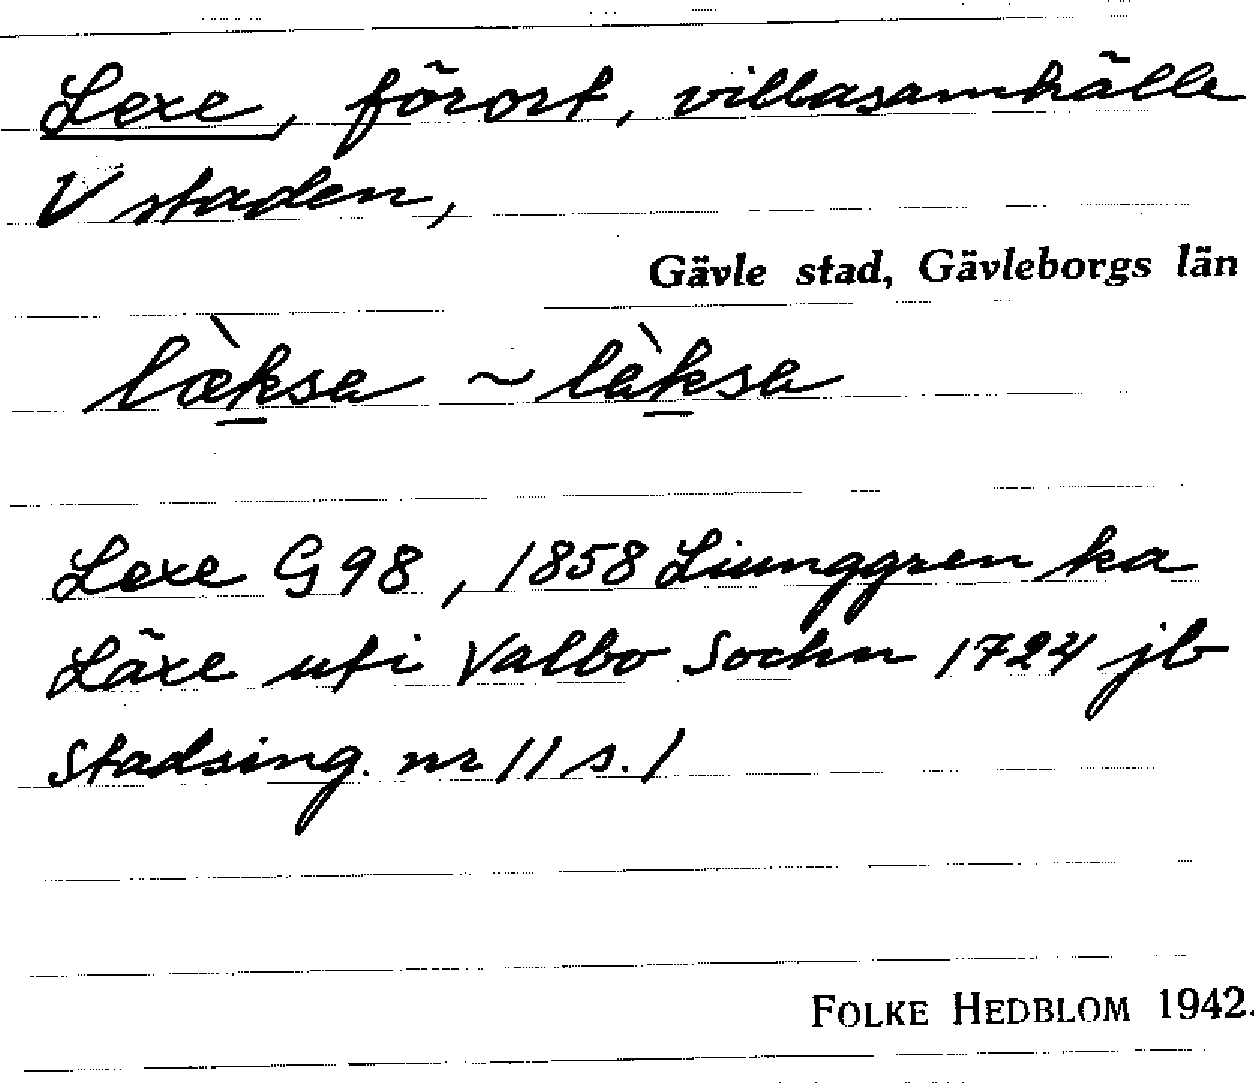 Lexe, förort, villasamhälle
V staden,
Gävle stad, Gävleborgs län
læ̀ksa ~ làksa
Lexe G 98, 1858 Ljunggren ka
Läxe uti Valbo Sochn 1724 jb
Stadsing. nr 11 s. 1
FOLKE HEDBLOM 1942.